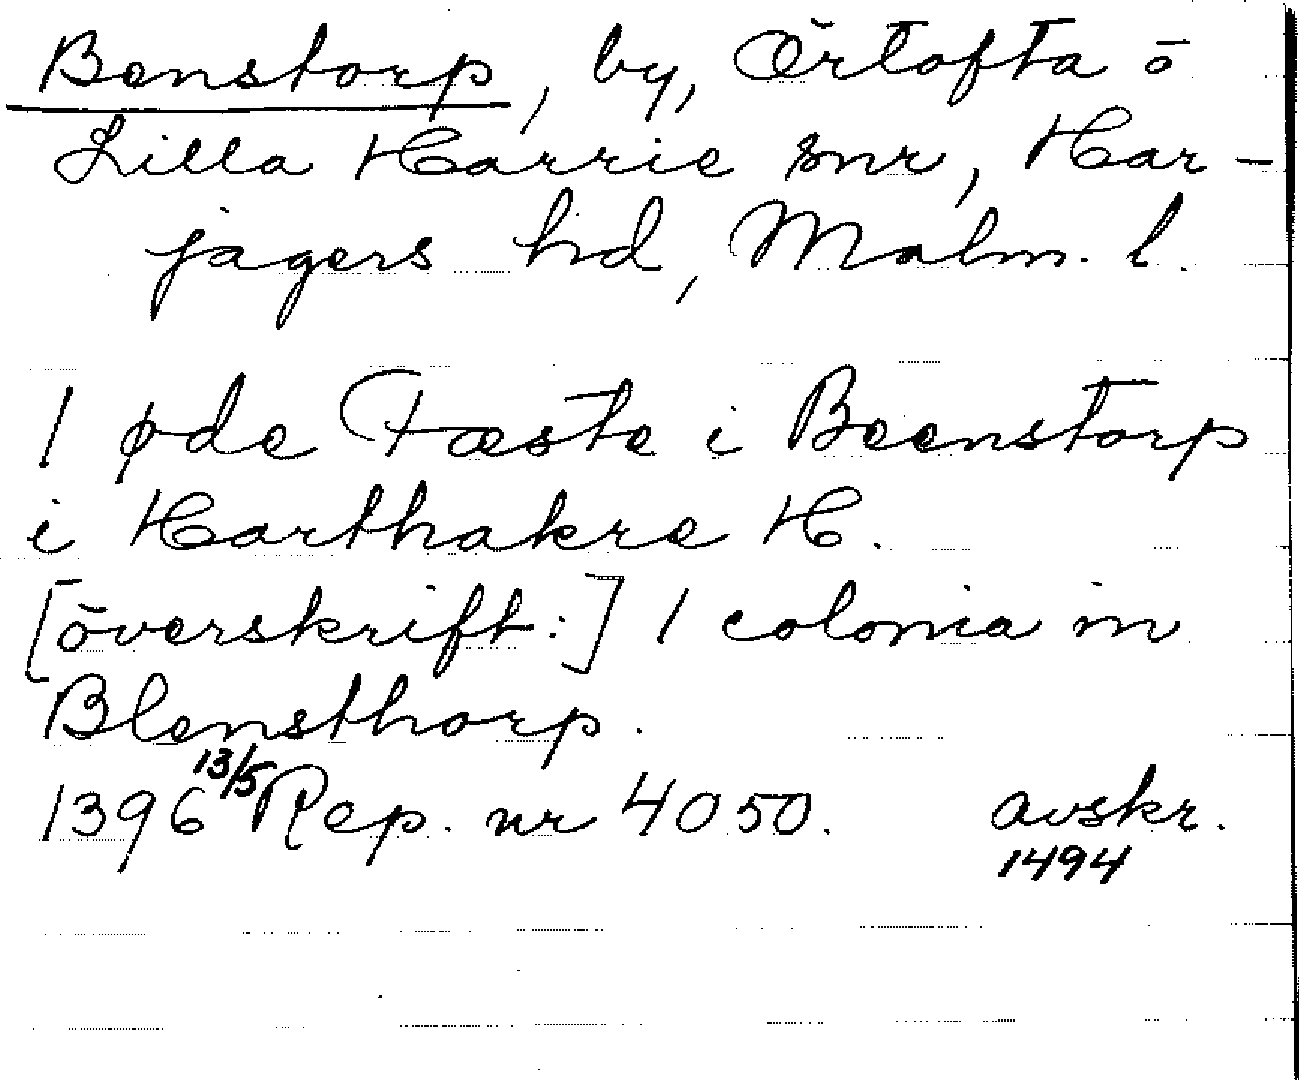 Benstorp, by, Örtofta o
Lilla Harrie snr, Har-
jagers hd, Malm. l.
1 øde Fæste i Beenstorp
i Harthakre H.
[överskrift:] 1 colonia in
Blensthorp.
1396 13/5 Rep. nr 4050. avskr.
1494